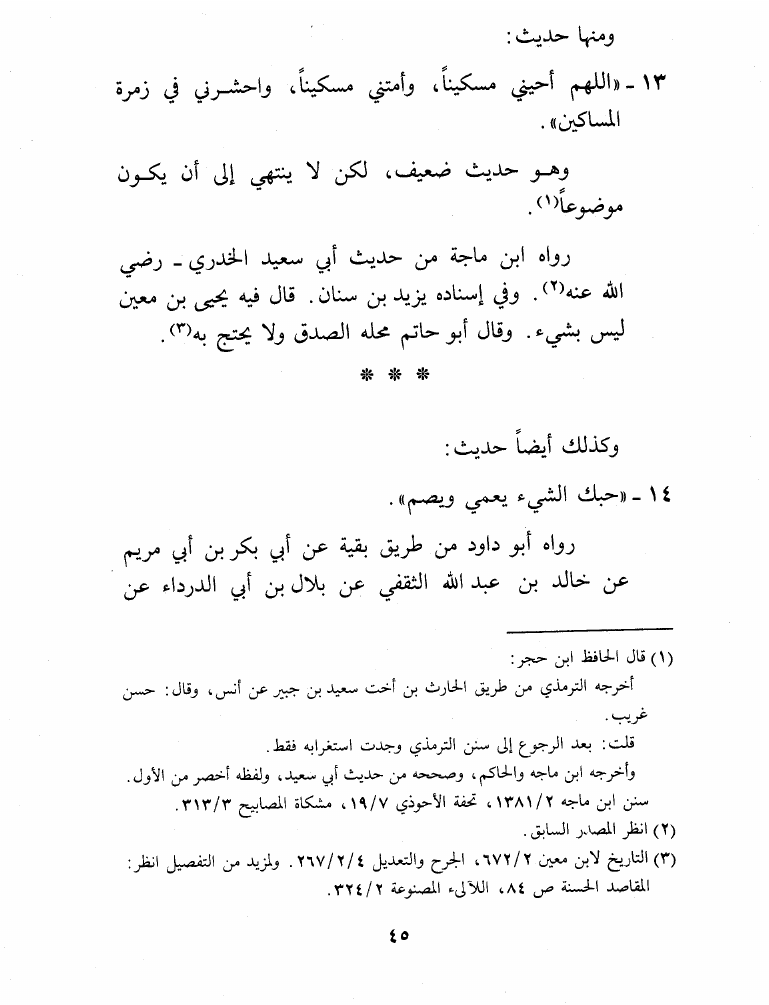 ومنها حديث:
١٣ - «اللهم أحيني مسكيناً، وأمتني مسكيناً، واحشرني في زمرة
المساكين».
وهو حديث ضعيف، لكن لا ينتهي إلى أن يكون
موضوعاً(١).
رواه ابن ماجة من حديث أبي سعيد الخدري - رضي
الله عنه(٢). وفي إسناده يزيد بن سنان. قال فيه يحيى بن معين
ليس بشيء. وقال أبو حاتم محله الصدق ولا يحتج به(٣).
* * *
وكذلك أيضاً حديث:
١٤ - «حبك الشيء يعمي ويصم».
رواه أبو داود من طريق بقية عن أبي بكر بن أبي مريم
عن خالد بن عبد الله الثقفي عن بلال بن أبي الدرداء عن
(١) قال الحافظ ابن حجر:
أخرجه الترمذي من طريق الحارث بن أخت سعيد بن جبير عن أنس، وقال: حسن
غريب.
قلت: بعد الرجوع إلى سنن الترمذي وجدت استغرابه فقط.
وأخرجه ابن ماجه والحاكم، وصححه من حديث أبي سعيد، ولفظه أخصر من الأول.
سنن ابن ماجه ١٣٨١/٢، تحفة الأحوذي ١٩/٧، مشكاة المصابيح ٣١٣/٣.
(٢) انظر المصدر السابق.
(٣) التاريخ لابن معين ٦٧٢/٢، الجرح والتعديل ٢٦٧/٢/٤. ولمزيد من التفصيل انظر:
المقاصد الحسنة ص ٨٤، اللآلىء المصنوعة ٣٢٤/٢.
٤٥